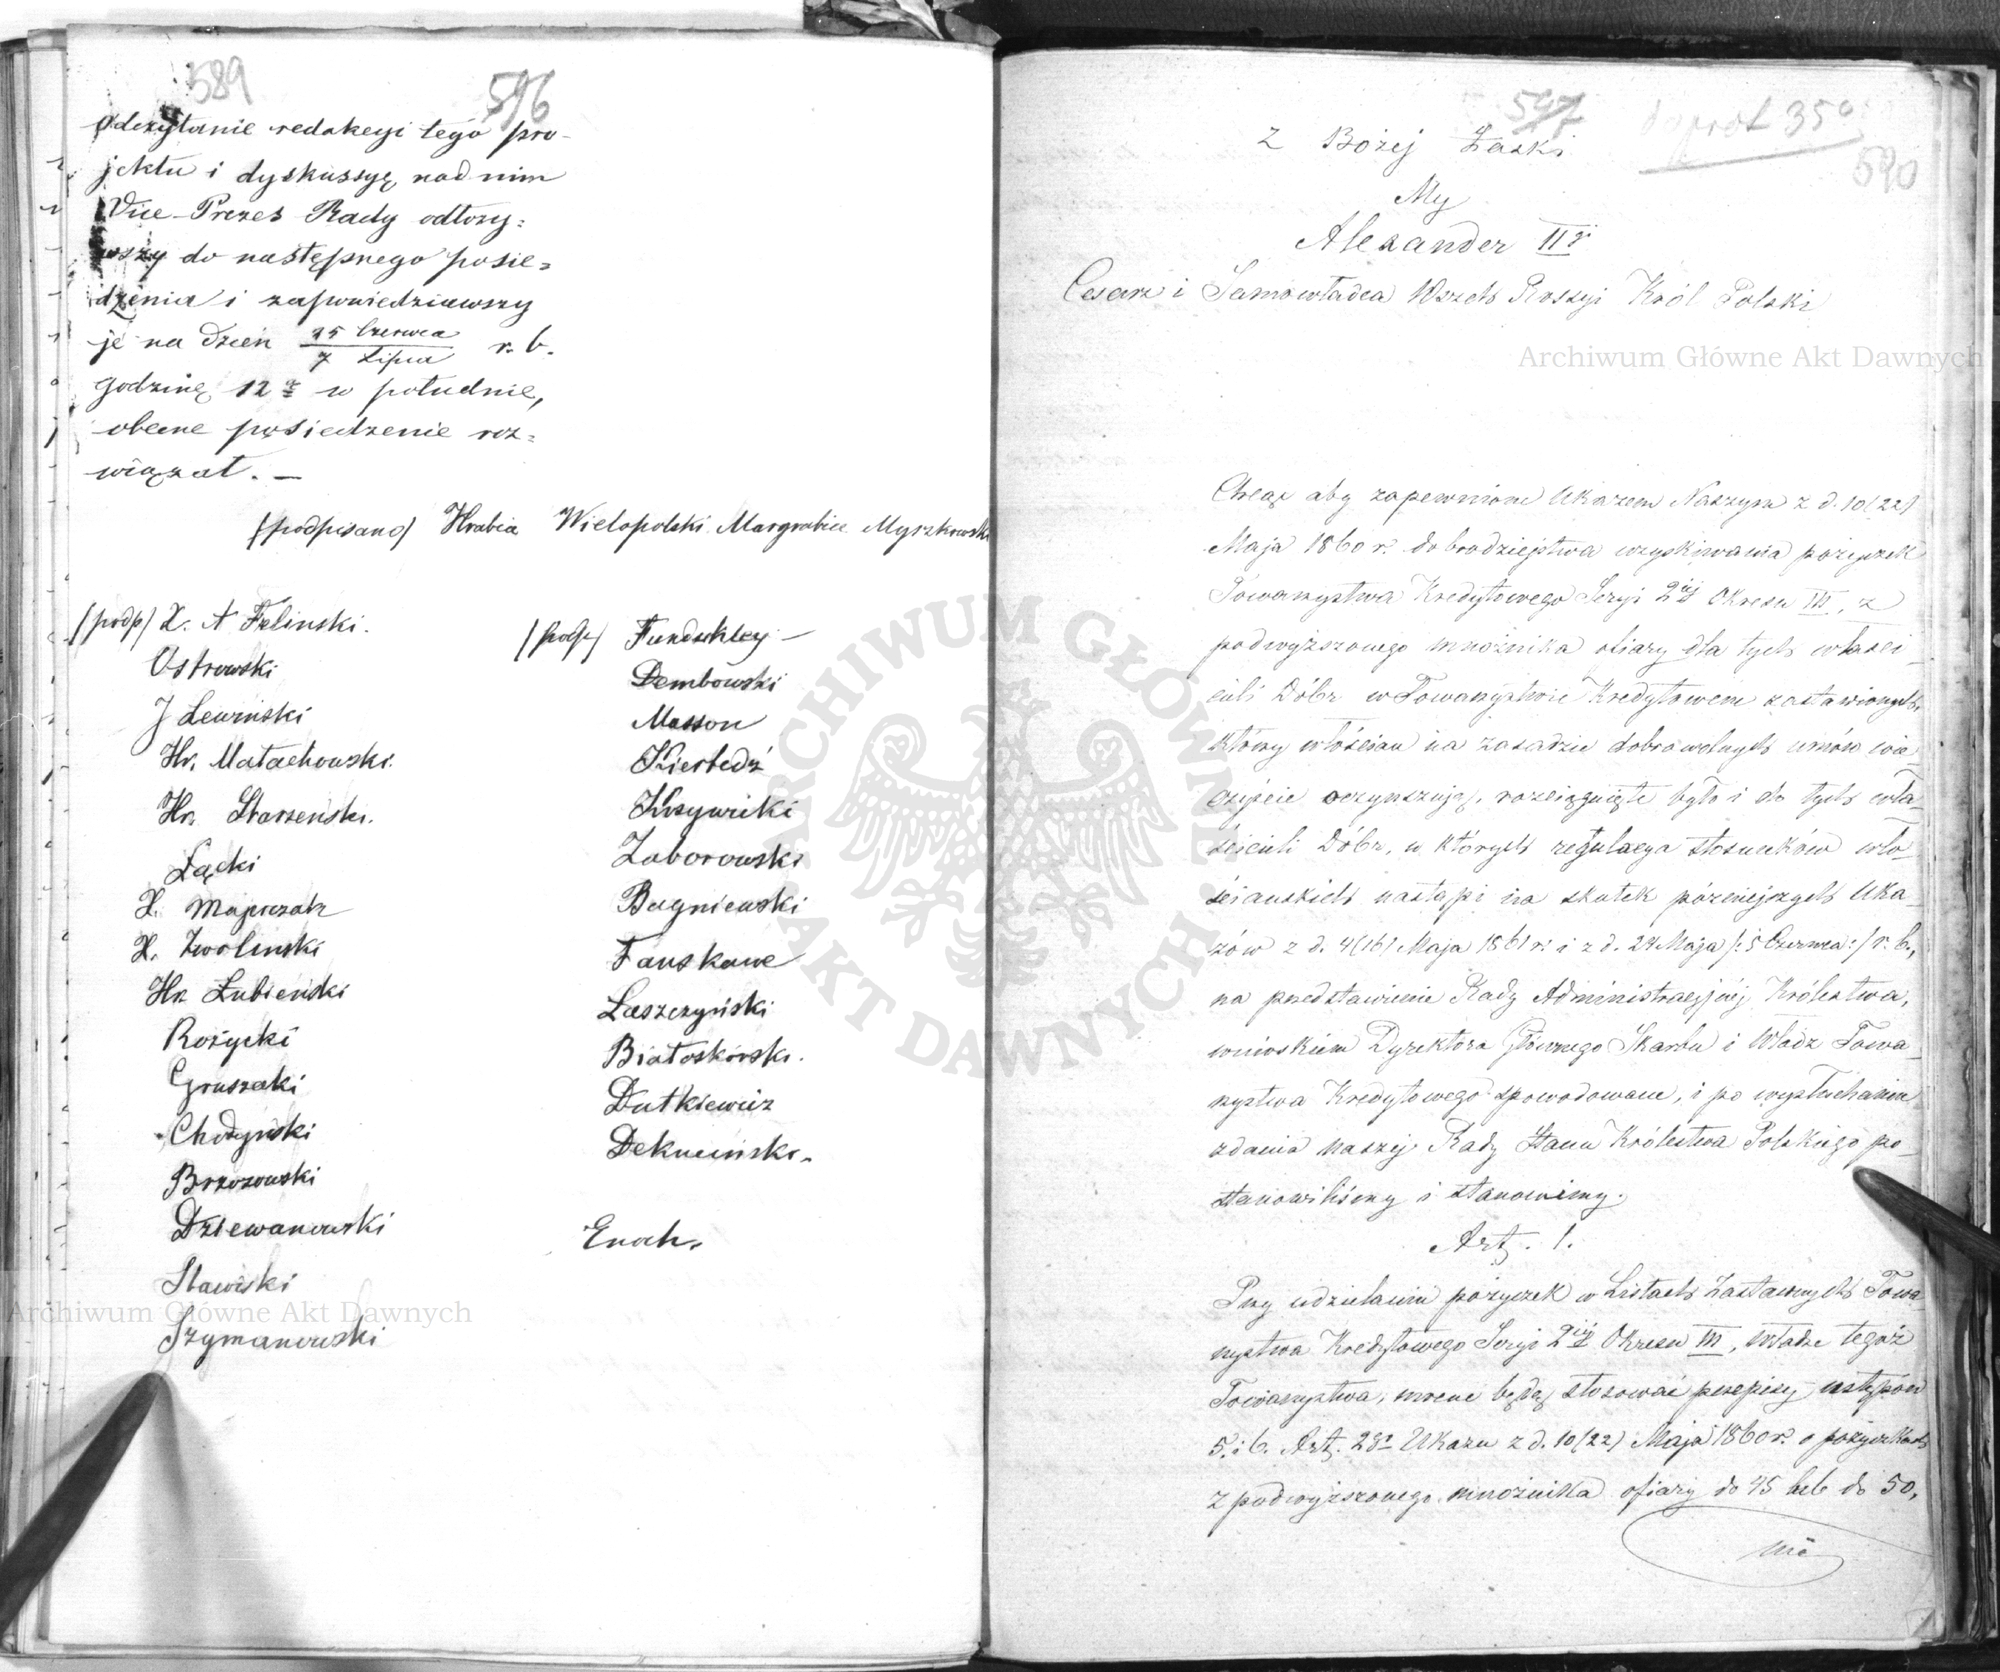 589
596
odczytanie redakcyi tego pro-
jektu i dyskussyę nad nim
Vice-Prezes Rady odłoży-
wszy do następnego posie-
dzenia i zapowiedziawszy
je na dzień 25 Czerwca / 7 Lipca r. b.
godzinę 12ą w południe,
obecne posiedzenie roz-
wiązał. —
/podpisano/ Hrabia Wielopolski Margrabia Myszkowski
/podp/ X. A Feliński.
Ostrowski
J Lewiński
Hr. Małachowski.
Hr. Starzeński.
Łącki
X. Majerczak
X. Zwoliński
Hr. Łubieński
Rożycki
Gruszecki
Chełzyński
Brzozowski
Dziewanowski
Stawiski
Szymanowski
/podp/ Funduklej —
Dembowski
Masson
Kierbedź
Krzywicki
Zaborowski
Bagniewski
Fanshawe
Łaszczyński
Białoskórski.
Dutkiewicz
Dekuciński.
Enoch.
597
do prot 35
590
Z Bożej Łaski
My
Alexander IIgi
Cesarz i Samowładca Wszech Rossyi Król Polski
Archiwum Główne Akt Dawnych
Chcąc aby zapewnione Ukazem Naszym z d. 10 (22)
Maja 1860 r. dobrodziejstwa uzyskiwania pożyczek
Towarzystwa Kredytowego Seryi 2iej Okresu III, z
podwyższonego mnożnika ofiary dla tych właści-
cieli Dóbr w Towarzystwie Kredytowem zastawionych,
którzy włościan na zasadzie dobrowolnych umów wie-
czyście oczynszują, rozciągnięte było i do tych wła-
ścicieli Dóbr, w których regulacya stosunków wło-
ściańskich nastąpi na skutek późniejszych Uka-
zów z d. 4 (16) Maja 1861 r. i z d. 24 Maja /:5 Czerwca:/ r. b.,
na przedstawienie Rady Administracyjnej Królestwa,
wnioskiem Dyrektora Głównego Skarbu i Władz Towa-
rzystwa Kredytowego spowodowane, i po wysłuchaniu
zdania naszej Rady Stanu Królestwa Polskiego po-
stanowiliśmy i stanowimy.
Art. 1.
Przy udzielaniu pożyczek w Listach Zastawnych Towa-
rzystwa Kredytowego Seryi 2iej Okresu III, władze tegoż
Towarzystwa, mocne będą stosować przepisy ustępów
5. i 6. Art. 28o Ukazu z d. 10 (22) Maja 1860 r. o pożyczkach
z podwyższonego mnożnika ofiary do 45 lub do 50,
Archiwum Główne Akt Dawnych
ARCHIWUM GŁÓWNE AKT DAWNYCH